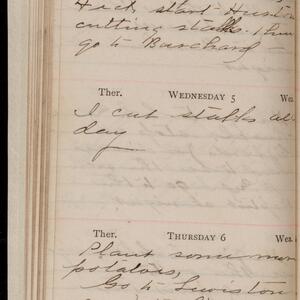 Fick start Huston
cutting stalks. Then
go to Burchard –
Ther. WEDNESDAY 5 Wea.
I cut stalks all
day
Ther. THURSDAY 6 Wea.
Plant some more
potatoes,
Go to Lewiston